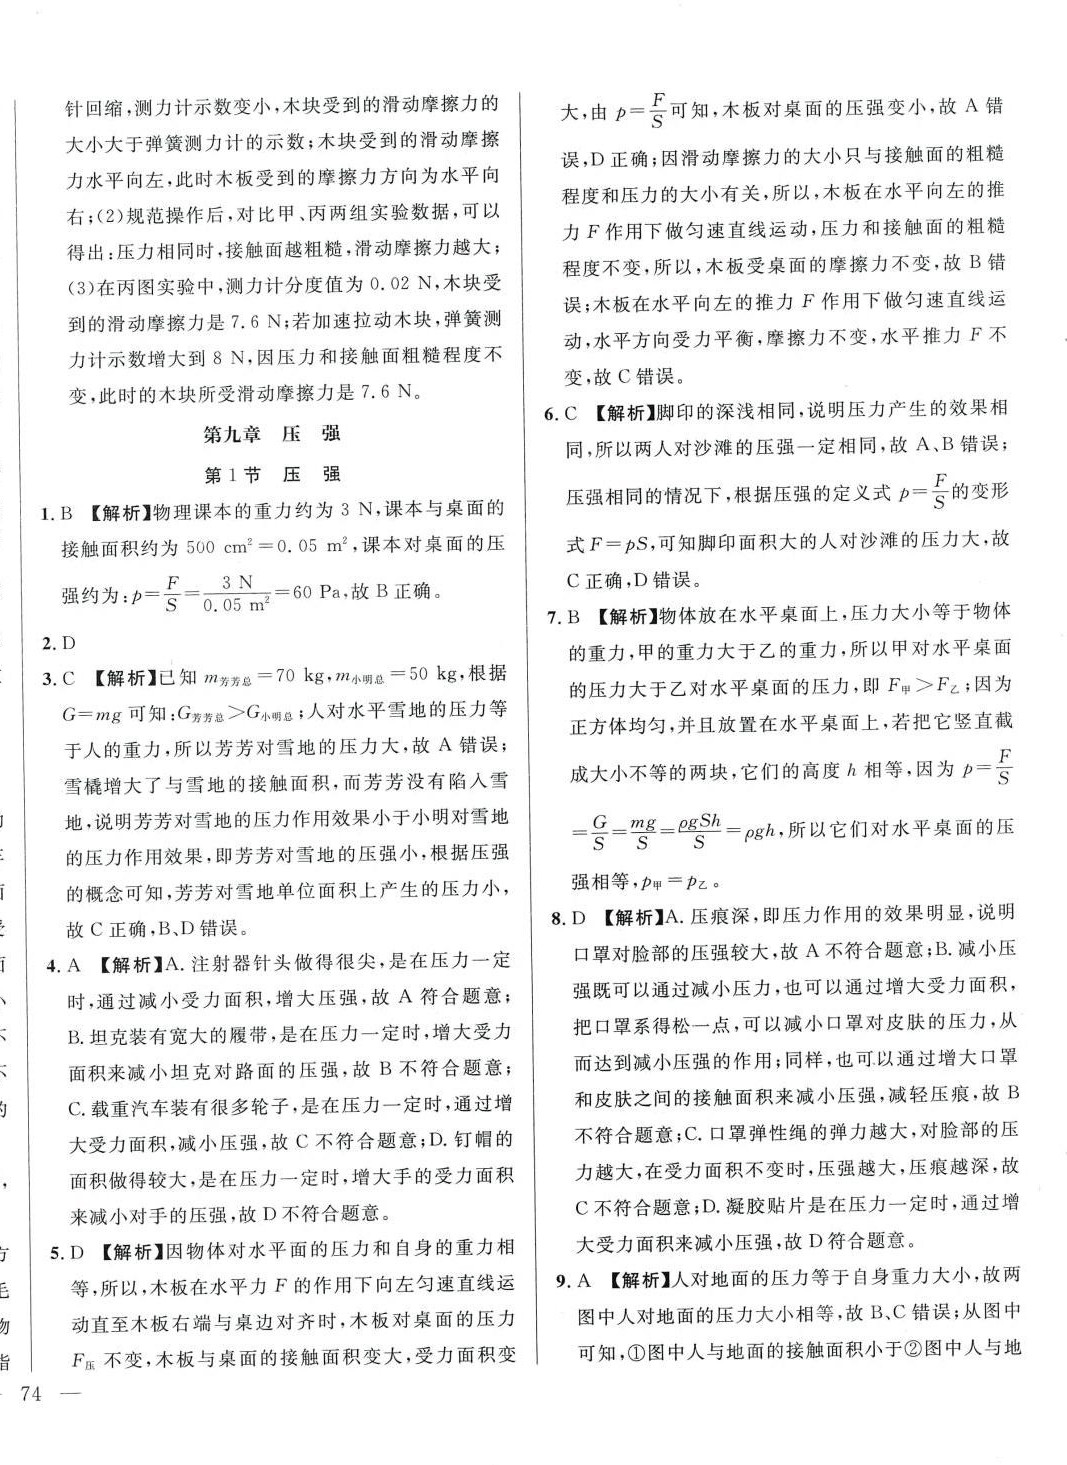 针回缩,测力计示数变小,木块受到的滑动摩擦力的
大小大于弹簧测力计的示数;木块受到的滑动摩擦
力水平向左,此时木板受到的摩擦力方向为水平向
右;(2)规范操作后,对比甲、丙两组实验数据,可以
得出:压力相同时,接触面越粗糙,滑动摩擦力越大;
(3)在丙图实验中,测力计分度值为 0.02 N,木块受
到的滑动摩擦力是 7.6 N;若加速拉动木块,弹簧测
力计示数增大到 8 N,因压力和接触面粗糙程度不
变,此时的木块所受滑动摩擦力是 7.6 N。
第九章 压 强
第 1 节 压 强
1. B 【解析】物理课本的重力约为 3 N,课本与桌面的
接触面积约为 500 cm²=0.05 m²,课本对桌面的压
强约为:p=F/S=3 N/0.05 m²=60 Pa,故 B 正确。
2. D
3. C 【解析】已知 m芳芳总=70 kg,m小明总=50 kg,根据
G=mg 可知:G芳芳总>G小明总;人对水平雪地的压力等
于人的重力,所以芳芳对雪地的压力大,故 A 错误;
雪橇增大了与雪地的接触面积,而芳芳没有陷入雪
地,说明芳芳对雪地的压力作用效果小于小明对雪地
的压力作用效果,即芳芳对雪地的压强小,根据压强
的概念可知,芳芳对雪地单位面积上产生的压力小,
故 C 正确,B、D 错误。
4. A 【解析】A. 注射器针头做得很尖,是在压力一定
时,通过减小受力面积,增大压强,故 A 符合题意;
B. 坦克装有宽大的履带,是在压力一定时,增大受力
面积来减小坦克对路面的压强,故 B 不符合题意;
C. 载重汽车装有很多轮子,是在压力一定时,通过增
大受力面积,减小压强,故 C 不符合题意;D. 钉帽的
面积做得较大,是在压力一定时,增大手的受力面积
来减小对手的压强,故 D 不符合题意。
5. D 【解析】因物体对水平面的压力和自身的重力相
等,所以,木板在水平力 F 的作用下向左匀速直线运
动直至木板右端与桌边对齐时,木板对桌面的压力
F压 不变,木板与桌面的接触面积变大,受力面积变
74 —
大,由 p=F/S可知,木板对桌面的压强变小,故 A 错
误,D 正确;因滑动摩擦力的大小只与接触面的粗糙
程度和压力的大小有关,所以,木板在水平向左的推
力 F 作用下做匀速直线运动,压力和接触面的粗糙
程度不变,所以,木板受桌面的摩擦力不变,故 B 错
误;木板在水平向左的推力 F 作用下做匀速直线运
动,水平方向受力平衡,摩擦力不变,水平推力 F 不
变,故 C 错误。
6. C 【解析】脚印的深浅相同,说明压力产生的效果相
同,所以两人对沙滩的压强一定相同,故 A、B 错误;
压强相同的情况下,根据压强的定义式 p=F/S的变形
式 F=pS,可知脚印面积大的人对沙滩的压力大,故
C 正确,D 错误。
7. B 【解析】物体放在水平桌面上,压力大小等于物体
的重力,甲的重力大于乙的重力,所以甲对水平桌面
的压力大于乙对水平桌面的压力,即 F甲>F乙;因为
正方体均匀,并且放置在水平桌面上,若把它竖直截
成大小不等的两块,它们的高度 h 相等,因为 p=F/S
=G/S=mg/S=ρgSh/S=ρgh,所以它们对水平桌面的压
强相等,p甲=p乙。
8. D 【解析】A. 压痕深,即压力作用的效果明显,说明
口罩对脸部的压强较大,故 A 不符合题意;B. 减小压
强既可以通过减小压力,也可以通过增大受力面积,
把口罩系得松一点,可以减小口罩对皮肤的压力,从
而达到减小压强的作用;同样,也可以通过增大口罩
和皮肤之间的接触面积来减小压强,减轻压痕,故 B
不符合题意;C. 口罩弹性绳的弹力越大,对脸部的压
力越大,在受力面积不变时,压强越大,压痕越深,故
C 不符合题意;D. 凝胶贴片是在压力一定时,通过增
大受力面积来减小压强,故 D 符合题意。
9. A 【解析】人对地面的压力等于自身重力大小,故两
图中人对地面的压力大小相等,故 B、C 错误;从图中
可知,①图中人与地面的接触面积小于②图中人与地